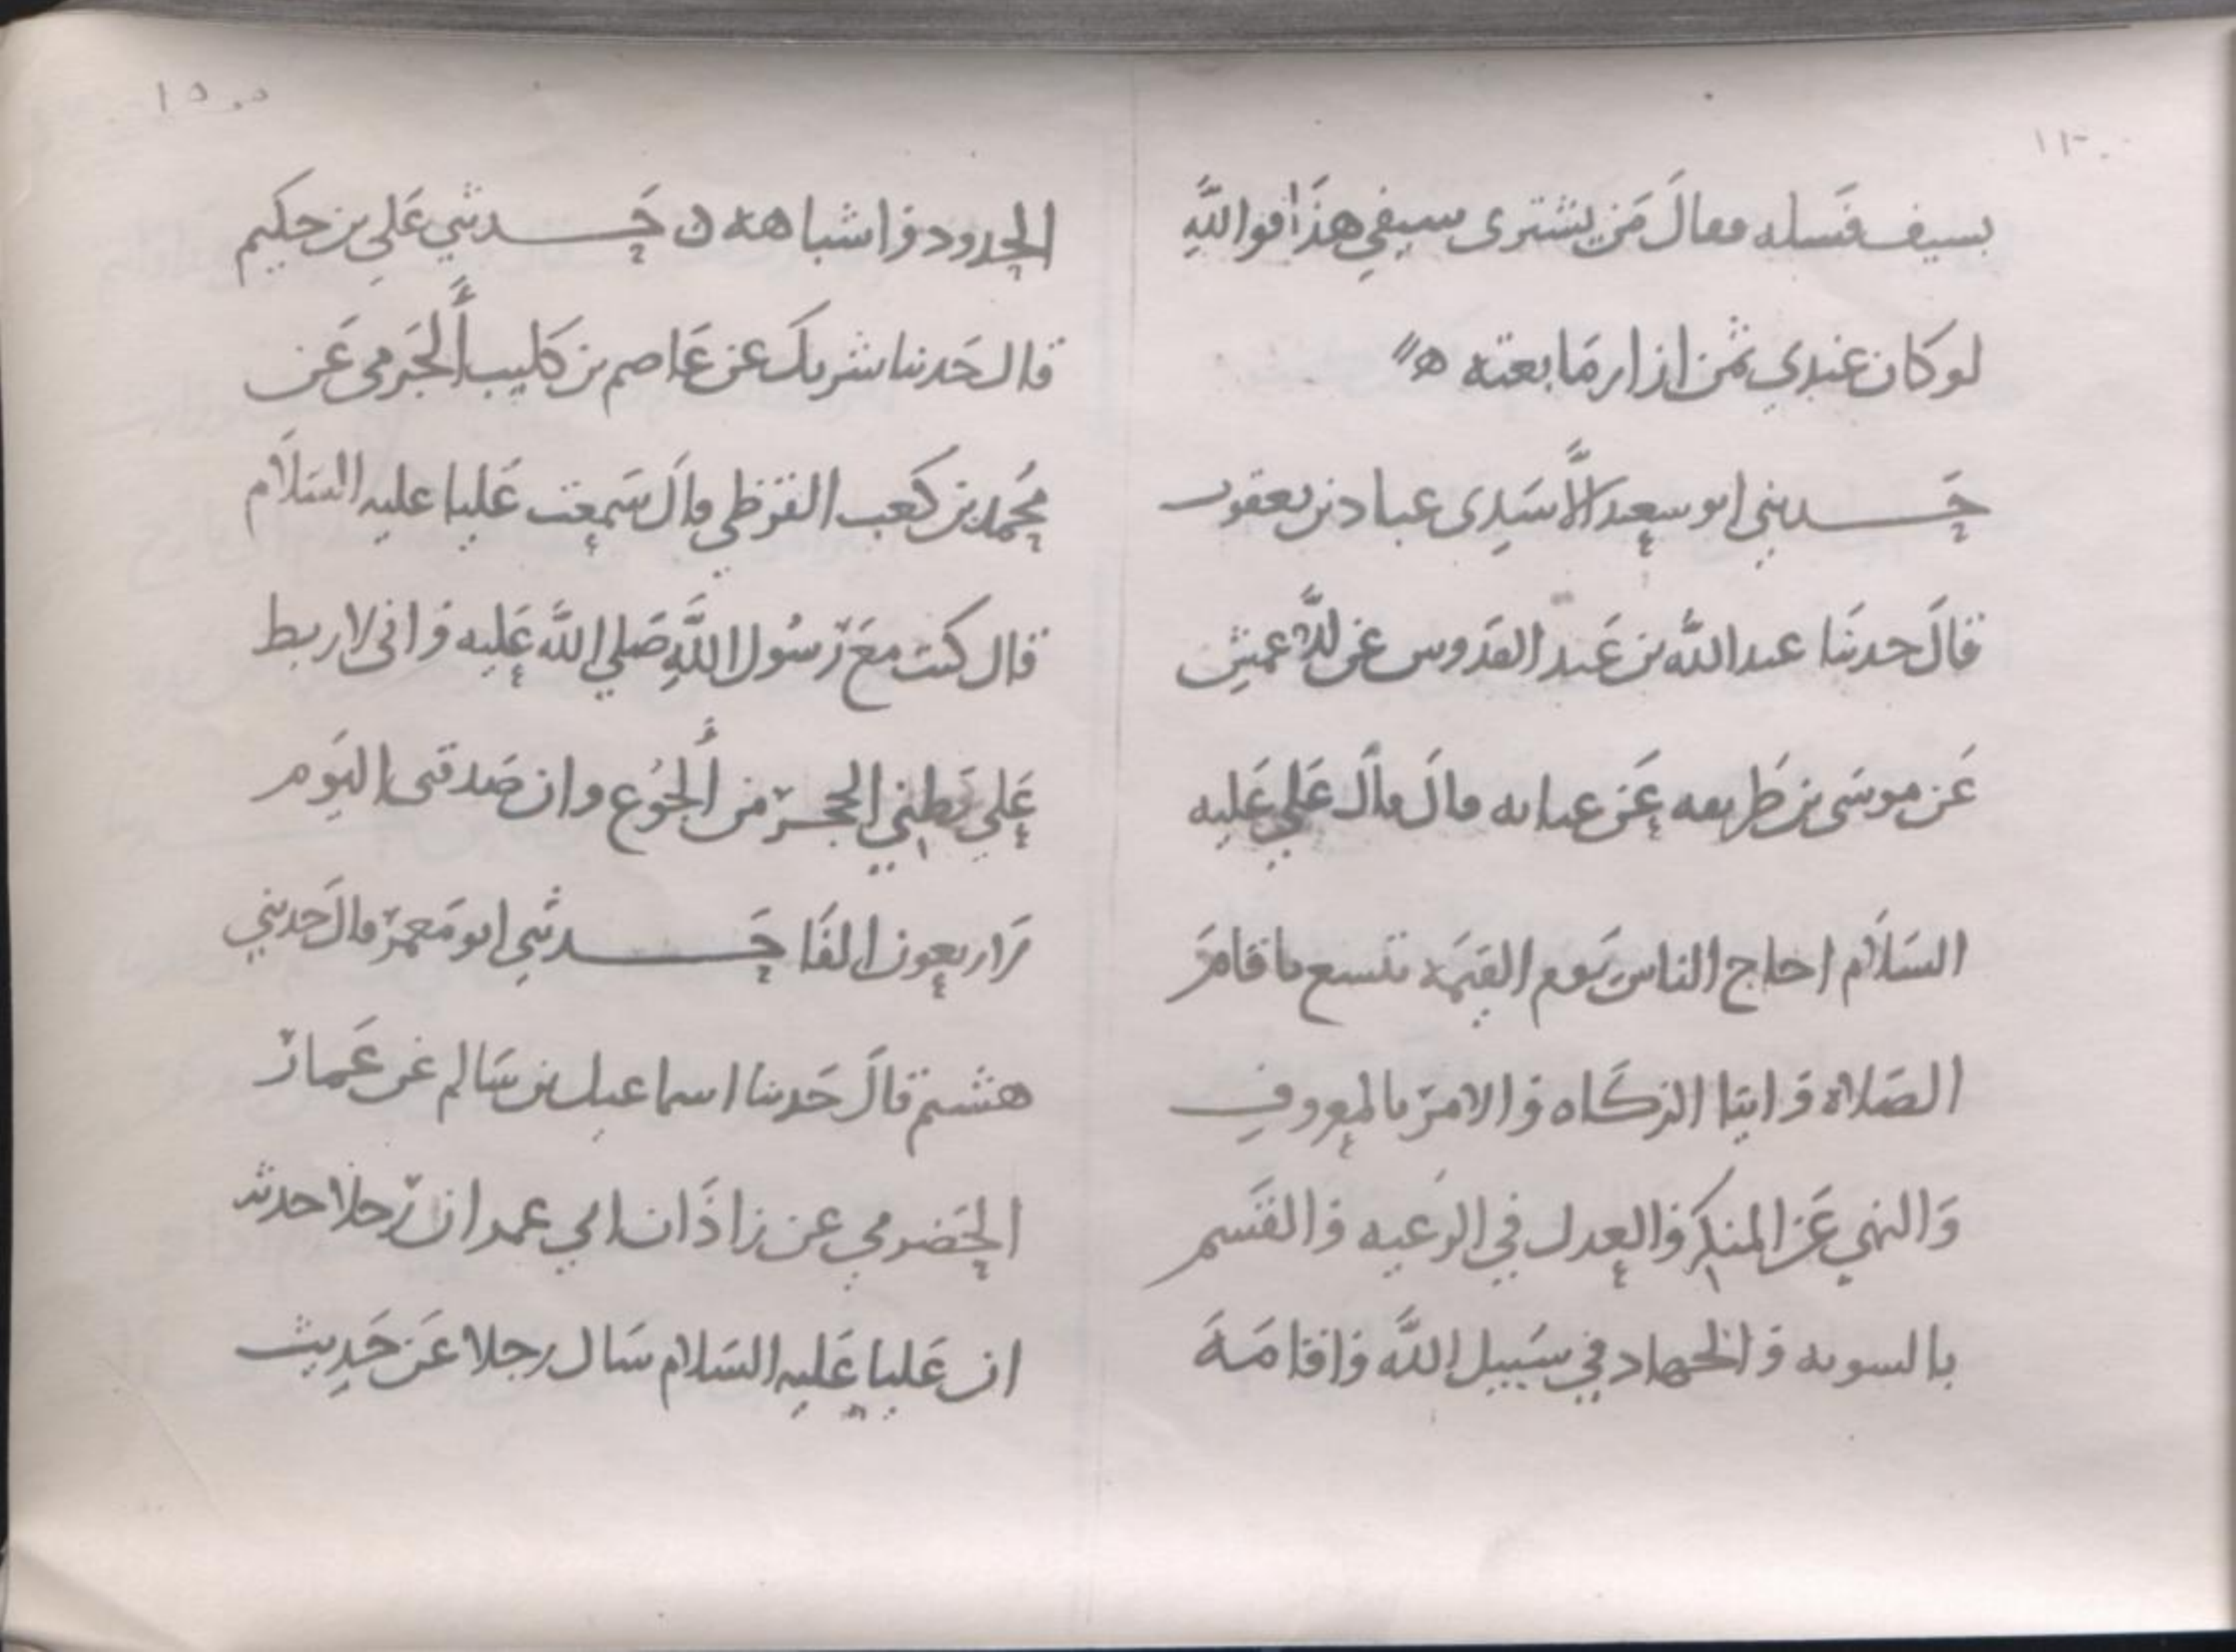 بسيف فسله فقال من يشتري سيفي هذا فوالله
لو كان عندي ثمن ازار ما بعته ه
حدثني ابو سعيد الاسدي عباد بن يعقوب
قال حدثنا عبد الله بن عبد القدوس عن الاعمش
عن موسى بن طريف عن عبايه قال قال علي عليه
السلام احاج الناس يوم القيمه بتسع باقام
الصلاه وايتا الزكاه والامر بالمعروف
والنهي عن المنكر والعدل في الرعيه والقسم
بالسويه والجهاد في سبيل الله واقامه
١٥
الحدود واشباهه ن حدثني علي بن حكيم
قال حدثنا شريك عن عاصم بن كليب الجرمي عن
محمد بن كعب القرظي قال سمعت عليا عليه السلام
قال كنت مع رسول الله صلي الله عليه واني لاربط
علي بطني الحجر من الجوع وان صدقتي اليوم
لاربعون الفا حدثني ابو معمر قال حدثني
هشيم قال حدثنا اسماعيل بن سالم عن عمار
الحضرمي عن زاذان ابي عمر ان رجلا حدثه
ان عليا عليه السلام سال رجلا عن حديث